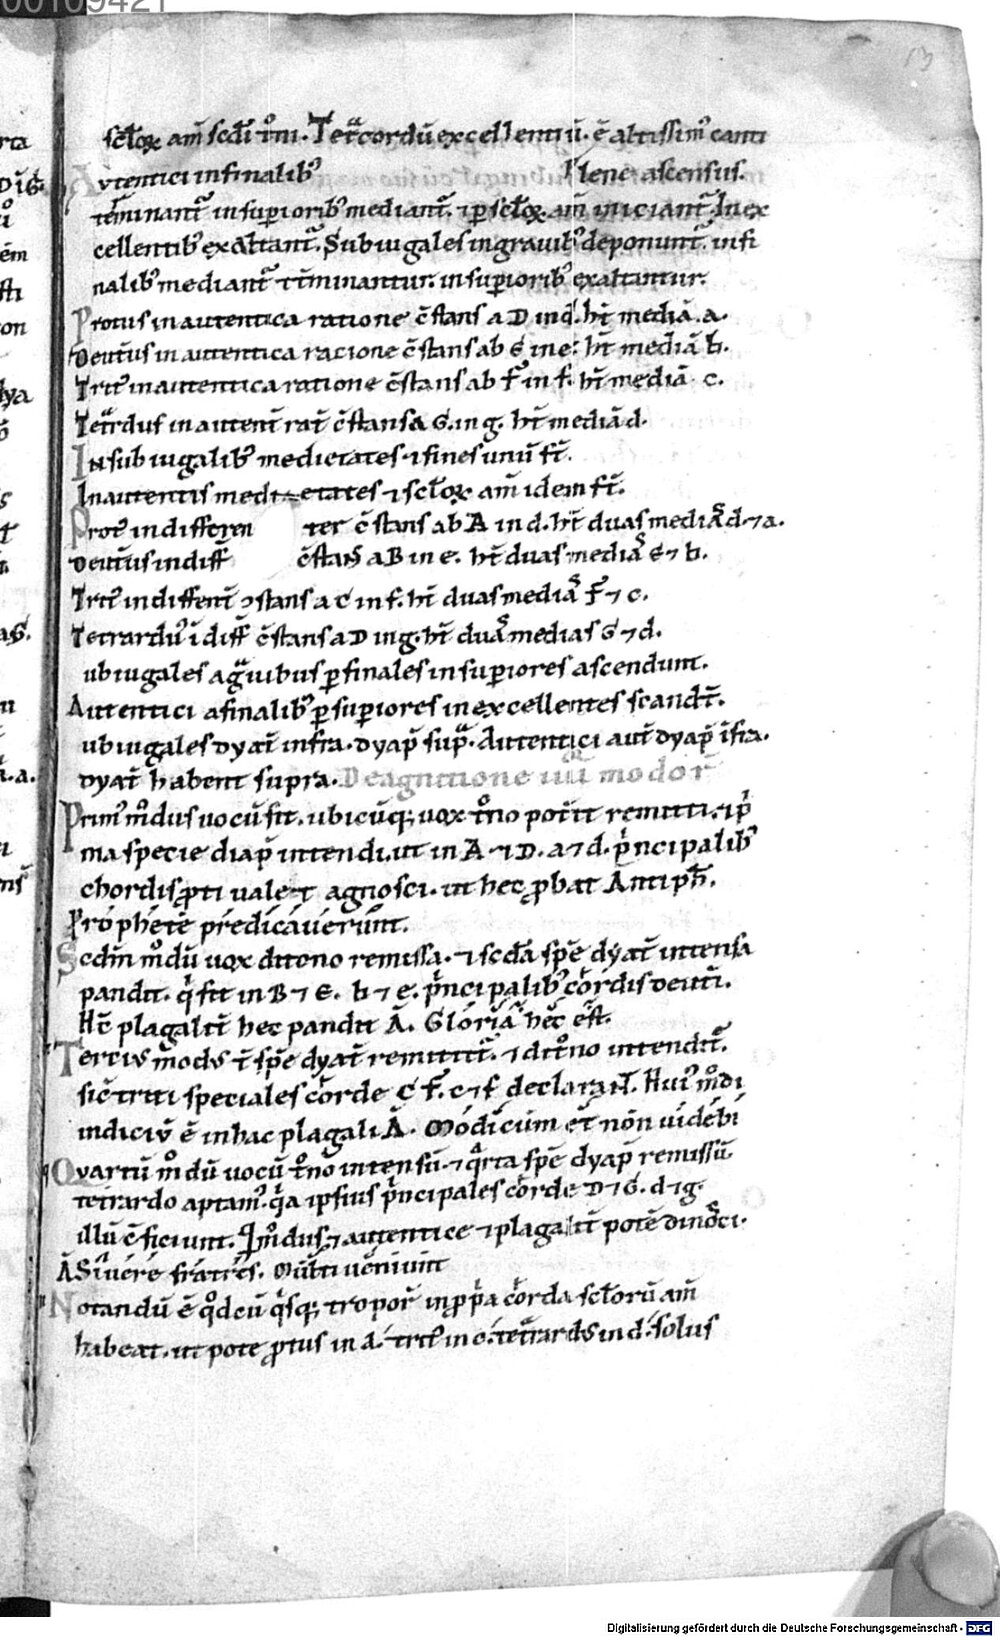 00109421
13
sclox am scdi toni. Tetcordu excellentiu. e altissim canti
Autentici in finalib plene ascensus.
terminant in superiorib mediant. & p sclox am iniciant. In ex
cellentib exaltant. Subiugales in gravib deponunt. in fi
nalib mediant terminantur. in superiorib exaltantur.
Protus in autentica ratione cstans a D in d. ht media. a.
Deutus in autentica racione cstans ab E in e. ht media b.
Trit in autentica ratione cstans ab F in f. ht media c.
Tetrdus in autent rat cstans a G. in g. ht media d.
In subiugalib medietates & fines unu st.
In autentis medietates & sclox am idem st.
Prot in differen ter cstans ab A in d. ht duas media d. & a.
Deutus in diff cstans a B in e. ht duas media E & b.
Trit in different cstans a C in f. ht duas media F & c.
Tetrardu i diff cstans a D in g. ht dua medias G & d.
ubiugales a gravibus p finales in superiores ascendunt.
Autentici a finalib p superiores in excellentes scandt.
ubiugales dyat infra. dyap supra. Autentici aut dyap ifra.
dyat habent supra. De agnitione iiii modor
Prim modus vocu fit. ubicuq; vox tono poterit remitti. & pi
ma specie diap intendi. ut in A. & D. a & d. pincipalib
chordis proti valet agnosci. ut hec probat Antiph.
Prophete predicaverunt.
Scdm modu vox ditono remissa. & scda spe dyat intensa
pandit. q fit in B & E. b & e. pincipalib cordis deuti.
Hc plagalit hec pandit A. Gloria hec est.
Tercius modus t spe dyat remittit. & ditono intendit.
sic triti speciales corde C F. c & f declarant. Hui modi
indiciu e in hac plagali A. Modicum et non videbi
Quartu modu vocu tono intensu. & qrta spe dyap remissu
tetrardo aptam. qa ipsius pincipales corde D & G. d & g.
illu cficiunt. Qi modus & autentice & plagalit pote dinoci.
A Si vere fratres. Multi veniunt
Notandu e qd cu qisq; tropor in ppia corda sclloru am
habeat. ut pote protus in d. trit in c. tetrardus in d. solus
Digitalisierung gefördert durch die Deutsche Forschungsgemeinschaft - DFG